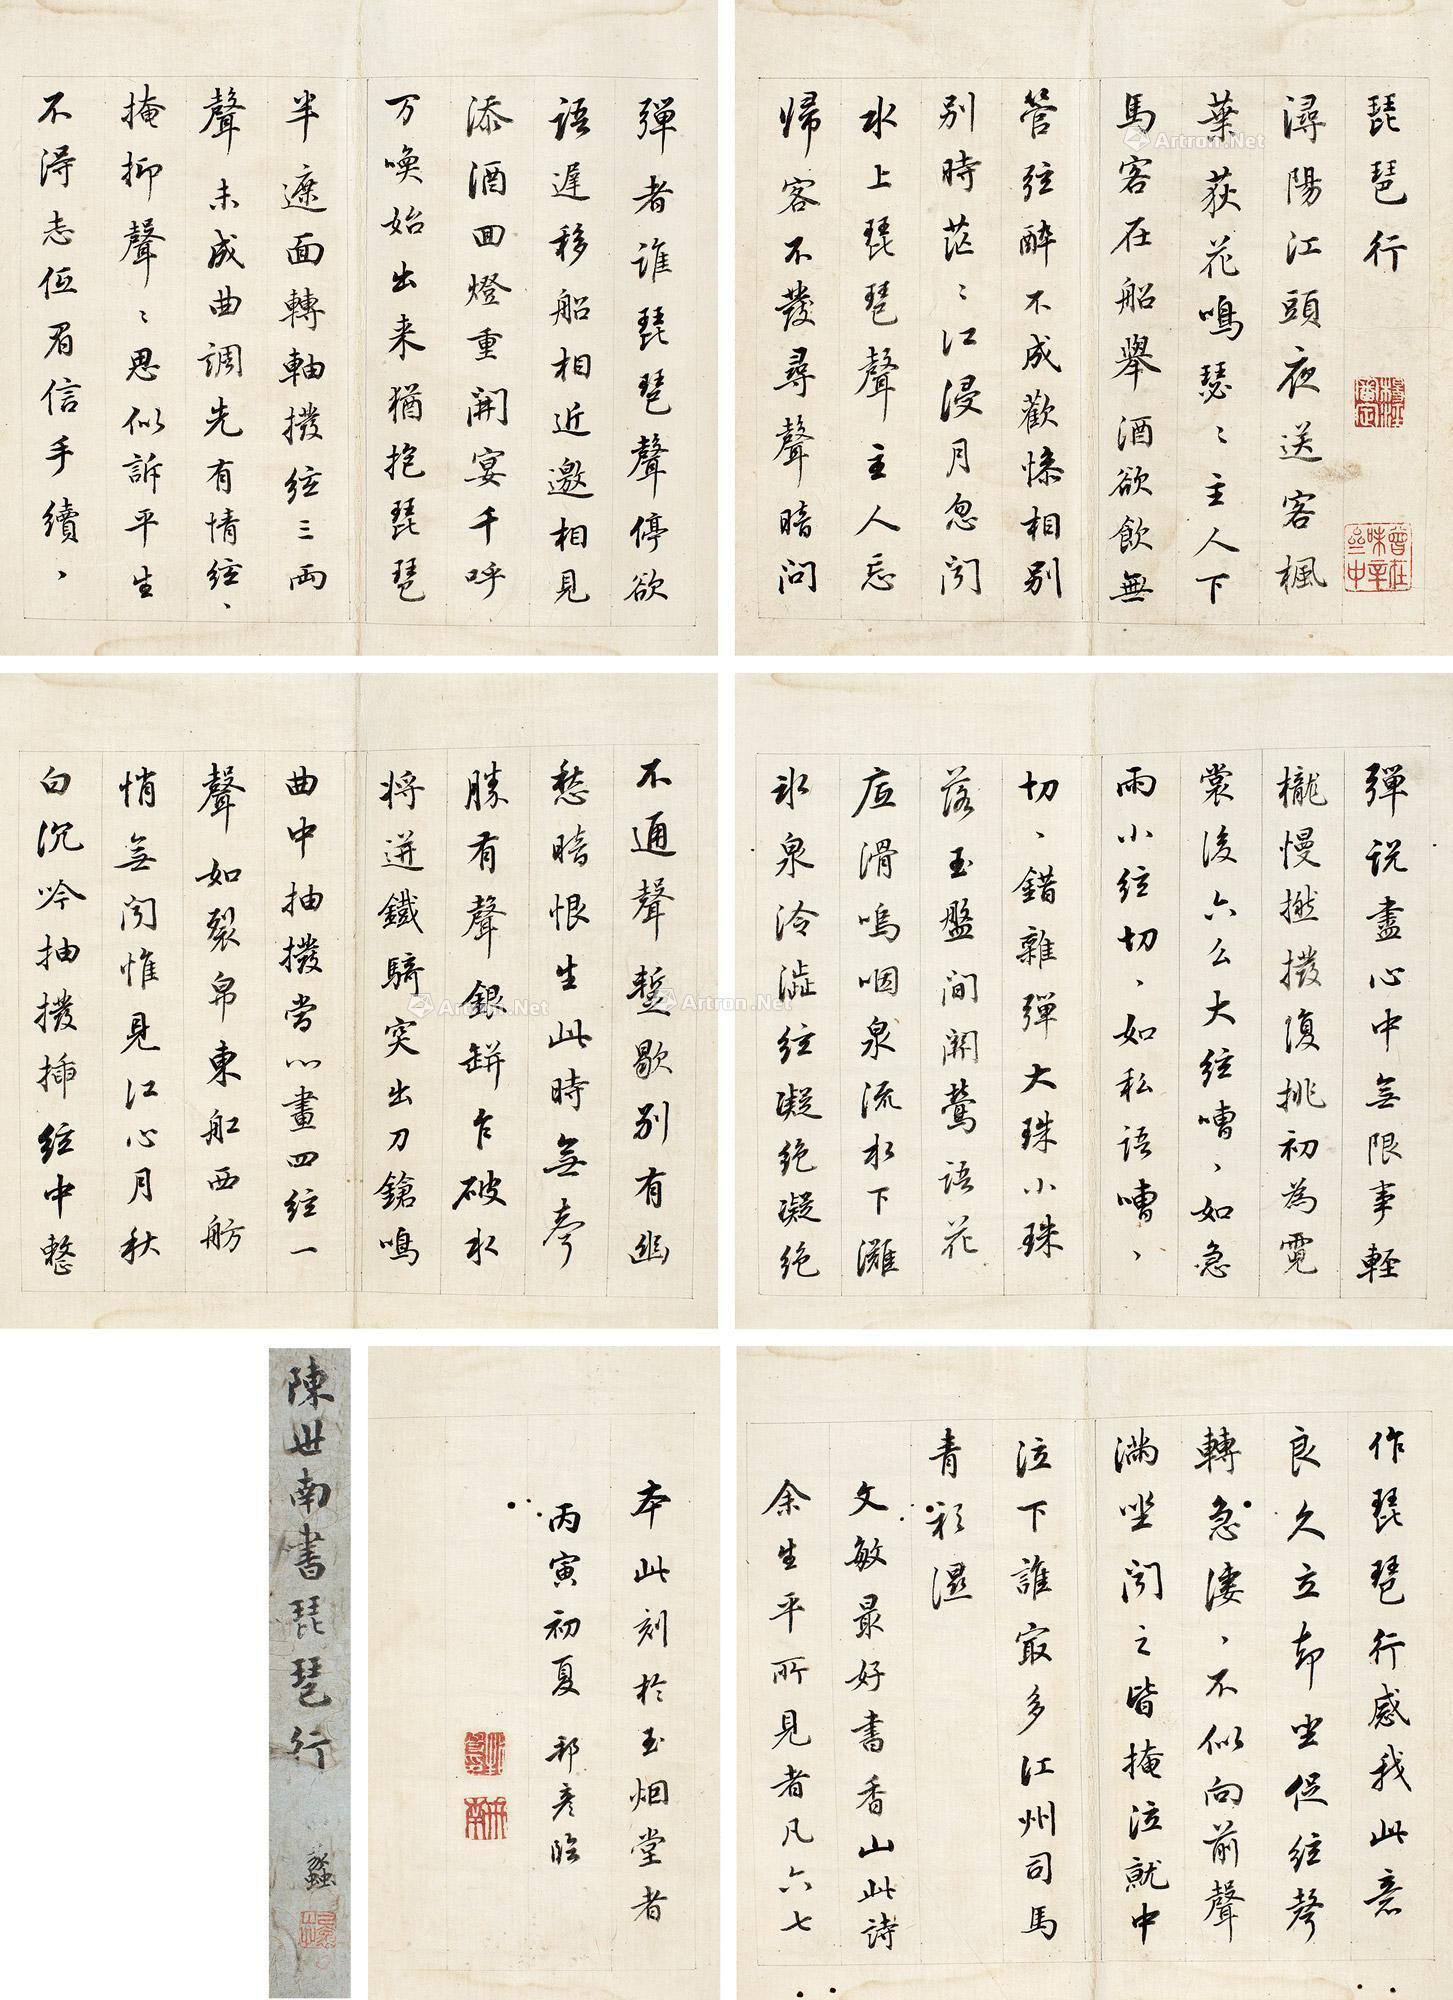 琵琶行
潯陽江頭夜送客楓
葉荻花鳴瑟〻主人下
馬客在船舉酒欲飲無
管弦醉不成歡慘相別
別時茫〻江浸月忽聞
水上琵琶聲主人忘
歸客不發尋聲暗問
彈者誰琵琶聲停欲
語遲移船相近邀相見
添酒回燈重開宴千呼
万喚始出来猶抱琵琶
半遮面轉軸撥絃三兩
聲未成曲調先有情絃〻
掩抑聲〻思似訴平生
不得志低眉信手續〻
彈説盡心中無限事輕
櫳慢撚撥復挑初為霓
裳後六么大絃嘈〻如急
雨小絃切〻如私語嘈〻
切〻錯雜彈大珠小珠
落玉盤間關鶯語花
底滑嗚咽泉流水下灘
氷泉冷澁絃凝絶凝絶
不通聲蹔歇別有幽
愁暗恨生此時無聲
勝有聲銀缾乍破水
将迸鐵騎突出刀鎗鳴
曲中抽撥當心畫四絃一
聲如裂帛東舩西舫
悄無聞惟見江心月秋
白沉吟抽撥插絃中整
作琵琶行感我此意
良久立却坐促絃聲
轉急淒〻不似向前聲
滿坐聞之皆掩泣就中
泣下誰最多江州司馬
青衫濕
文敏最好書香山此詩
余生平所見者凡六七
本此刻於玉烟堂者
丙寅初夏 邦彦臨
陳世南書琵琶行
Artron.Net
Artron.Net
Artron.Net
Artron.Net